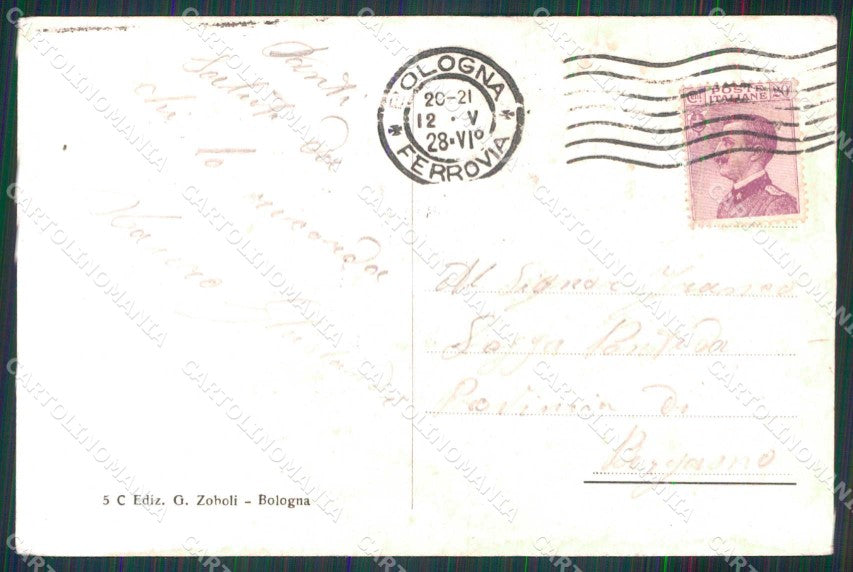 Tanti
Saluti da
chi lo
ricorda
BOLOGNA
20-21
12 · V
28·VI°
* FERROVIA *
POSTE
ITALIANE
Al Signor Franco
Provincia di
Bergamo
5 C Ediz. G. Zoboli - Bologna
CARTOLINOMANIA